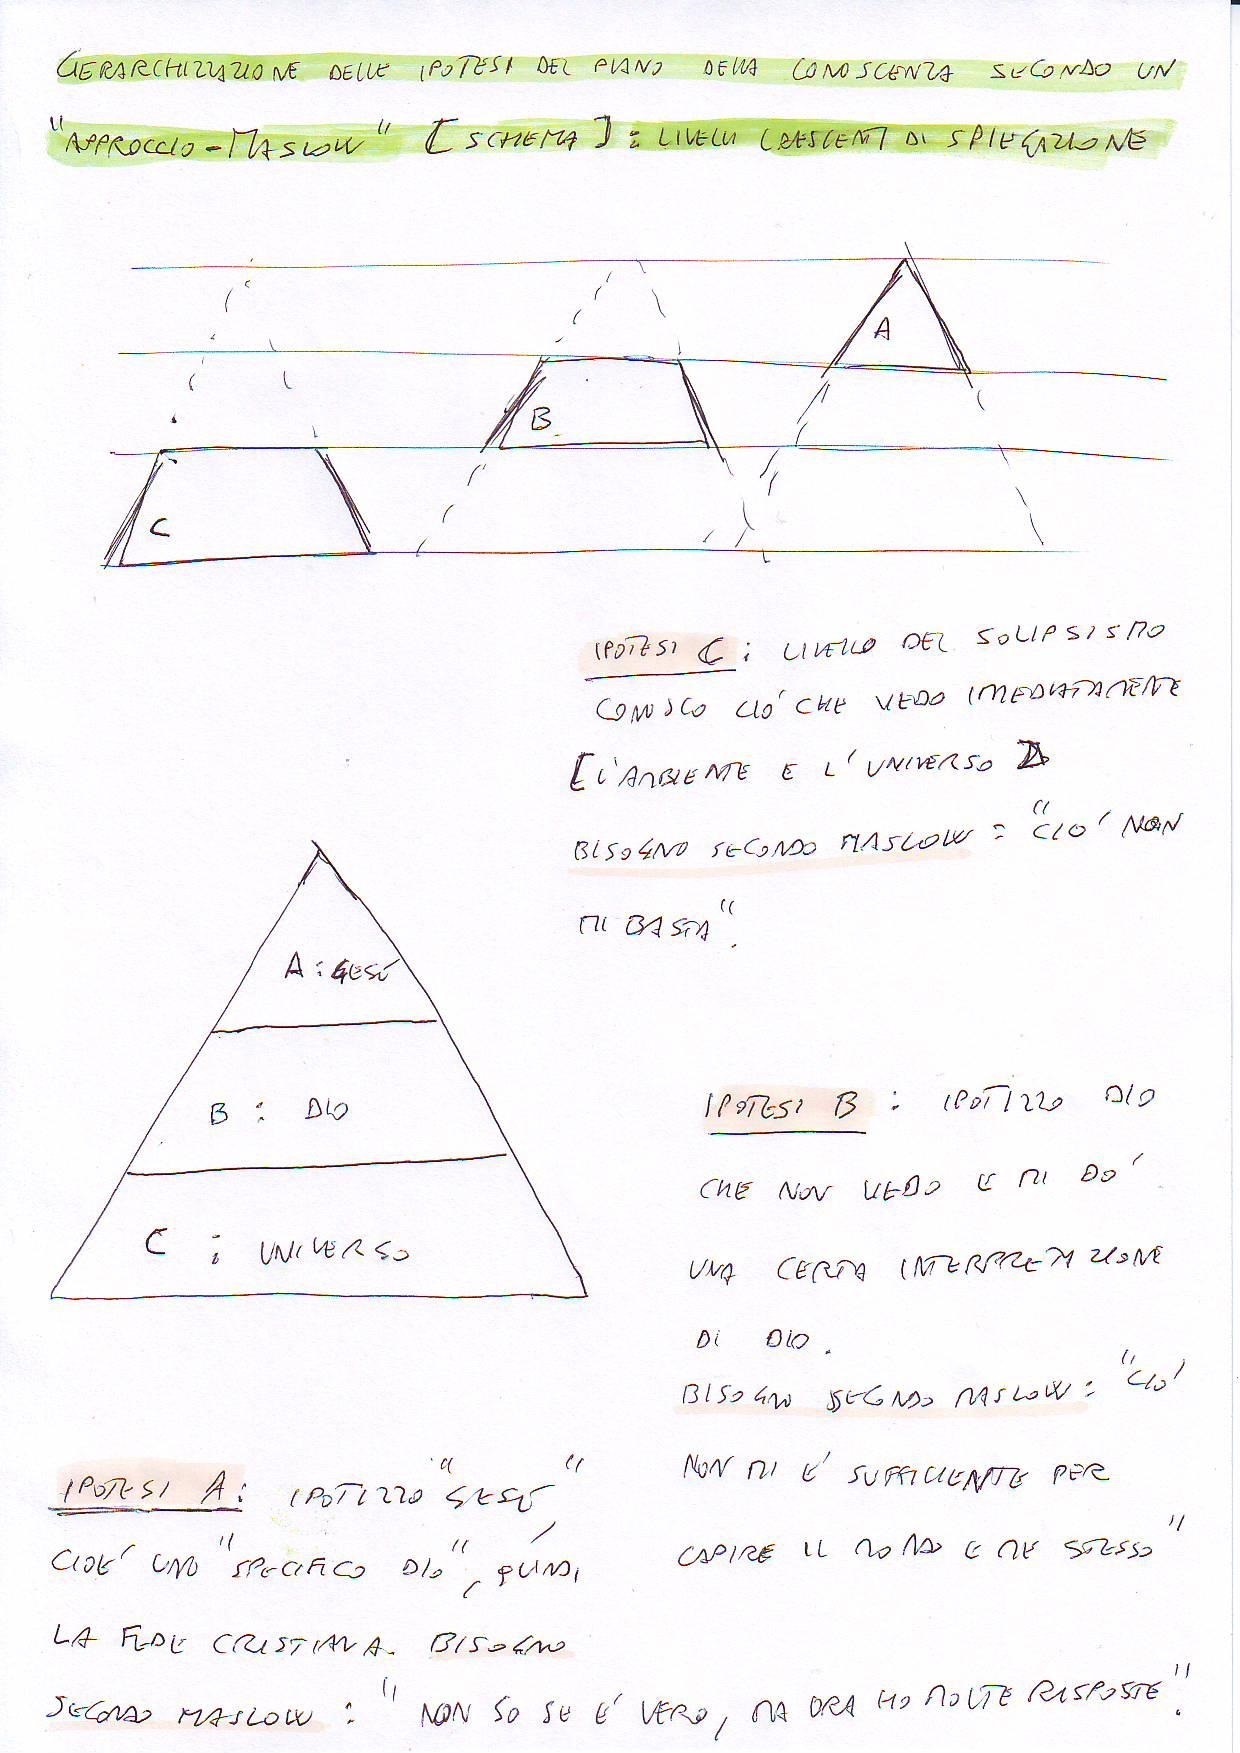 GERARCHIZZAZIONE DELLE IPOTESI DEL PIANO DELLA CONOSCENZA SECONDO UN
"APPROCCIO-MASLOW" [SCHEMA]: LIVELLI CRESCENTI DI SPIEGAZIONE
A
B
C
IPOTESI C: LIVELLO DEL SOLIPSISMO
CONOSCO CIÒ CHE VEDO IMEDIATAMENTE
[L'AMBIENTE E L'UNIVERSO]
BISOGNO SECONDO MASLOW: "CIÒ NON
MI BASTA".
A: GESÙ
B: DIO
C: UNIVERSO
IPOTESI B: IPOTIZZO DIO
CHE NON VEDO E MI DÒ
UNA CERTA INTERPRETAZIONE
DI DIO.
BISOGNO SECONDO MASLOW: "CIÒ
NON MI È SUFFICIENTE PER
CAPIRE IL MONDO E ME STESSO"
IPOTESI A: IPOTIZZO "GESÙ",
CIOÈ UNO "SPECIFICO DIO", QUINDI
LA FEDE CRISTIANA. BISOGNO
SECONDO MASLOW: "NON SO SE È VERO, MA ORA HO MOLTE RISPOSTE".